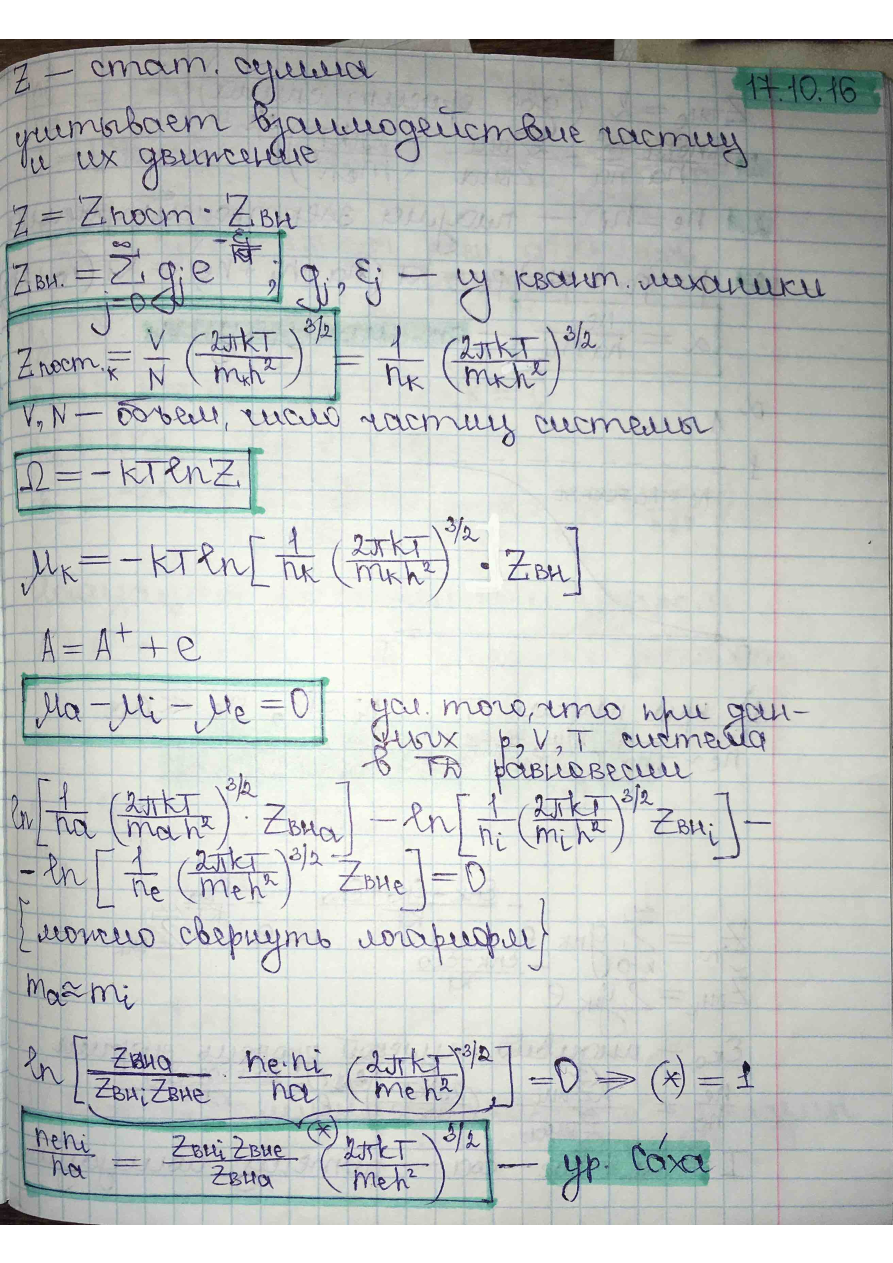 17.10.16
Z — стат. сумма
учитывает взаимодействие частиц
и их движение
Z = Zпост · Zвн
Zвн. = ∑_{j=0}^{∞} g_j e^{-ε_j/kT}; g_j, ε_j — из квант. механики
Zпост.к = V/N (2πkT/m_к h²)^{3/2} = 1/n_к (2πkT/m_к h²)^{3/2}
V, N — объем, число частиц системы
Ω = -kT ln Z
μ_к = -kT ln[1/n_к (2πkT/m_к h²)^{3/2} · Zвн]
A = A⁺ + e
μa - μi - μe = 0 усл. того, что при дан-
ных p, V, T система
в ТД равновесии
ln[1/na (2πkT/ma h²)^{3/2} · Zвнa] - ln[1/ni (2πkT/mi h²)^{3/2} Zвнi] -
- ln[1/ne (2πkT/me h²)^{3/2} Zвнe] = 0
{можно свернуть логарифм}
ma ≈ mi
ln[Zвнa/(Zвнi Zвнe) · ne·ni/na (2πkT/me h²)^{-3/2}] = 0 ⇒ (*) = 1
(*)
neni/na = Zвнi Zвнe/Zвнa (2πkT/me h²)^{3/2} — ур. Са́ха